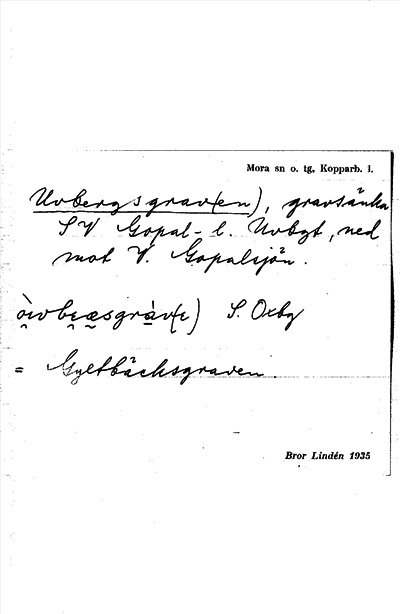 Mora sn o. tg, Kopparb. l.
Uvbergsgrav(en), gravsänka
SV Gopal- l. Uvbgt, ned
mot V. Gopalsjön.
S. Oxbg
= Gyltbäcksgraven.
Bror Lindén 1935